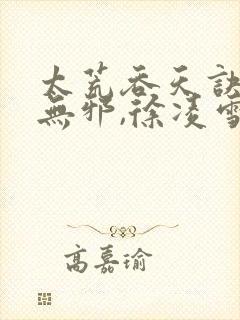 太荒吞天訣
無邪,徐凌雪
高嘉瑜